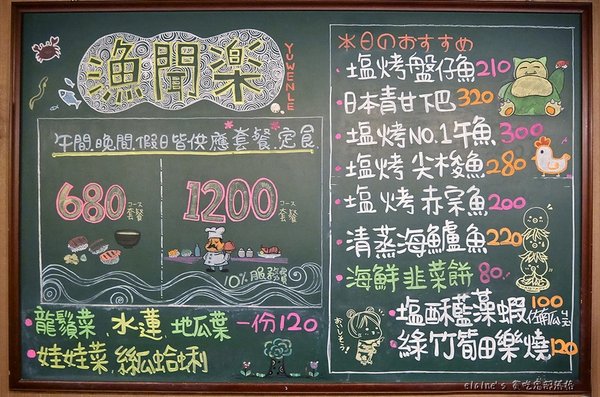 漁聞楽
YUWENLE
午間.晚間.假日皆供應套餐.定食
680 コース 套餐
1200 コース 套餐
10%服務費
・龍鬚菜、水蓮、地瓜葉一份120
・娃娃菜、絲瓜蛤蜊
*本日のおすすめ
・塩烤盤仔魚210
・日本青甘下巴320
・塩烤NO.1午魚300
・塩烤尖梭魚280
・塩烤赤宗魚200
・清蒸海鱸魚220
・海鮮韭菜餅80
・塩酥藍藻蝦100
・綠竹筍田樂燒120
おいしそう!